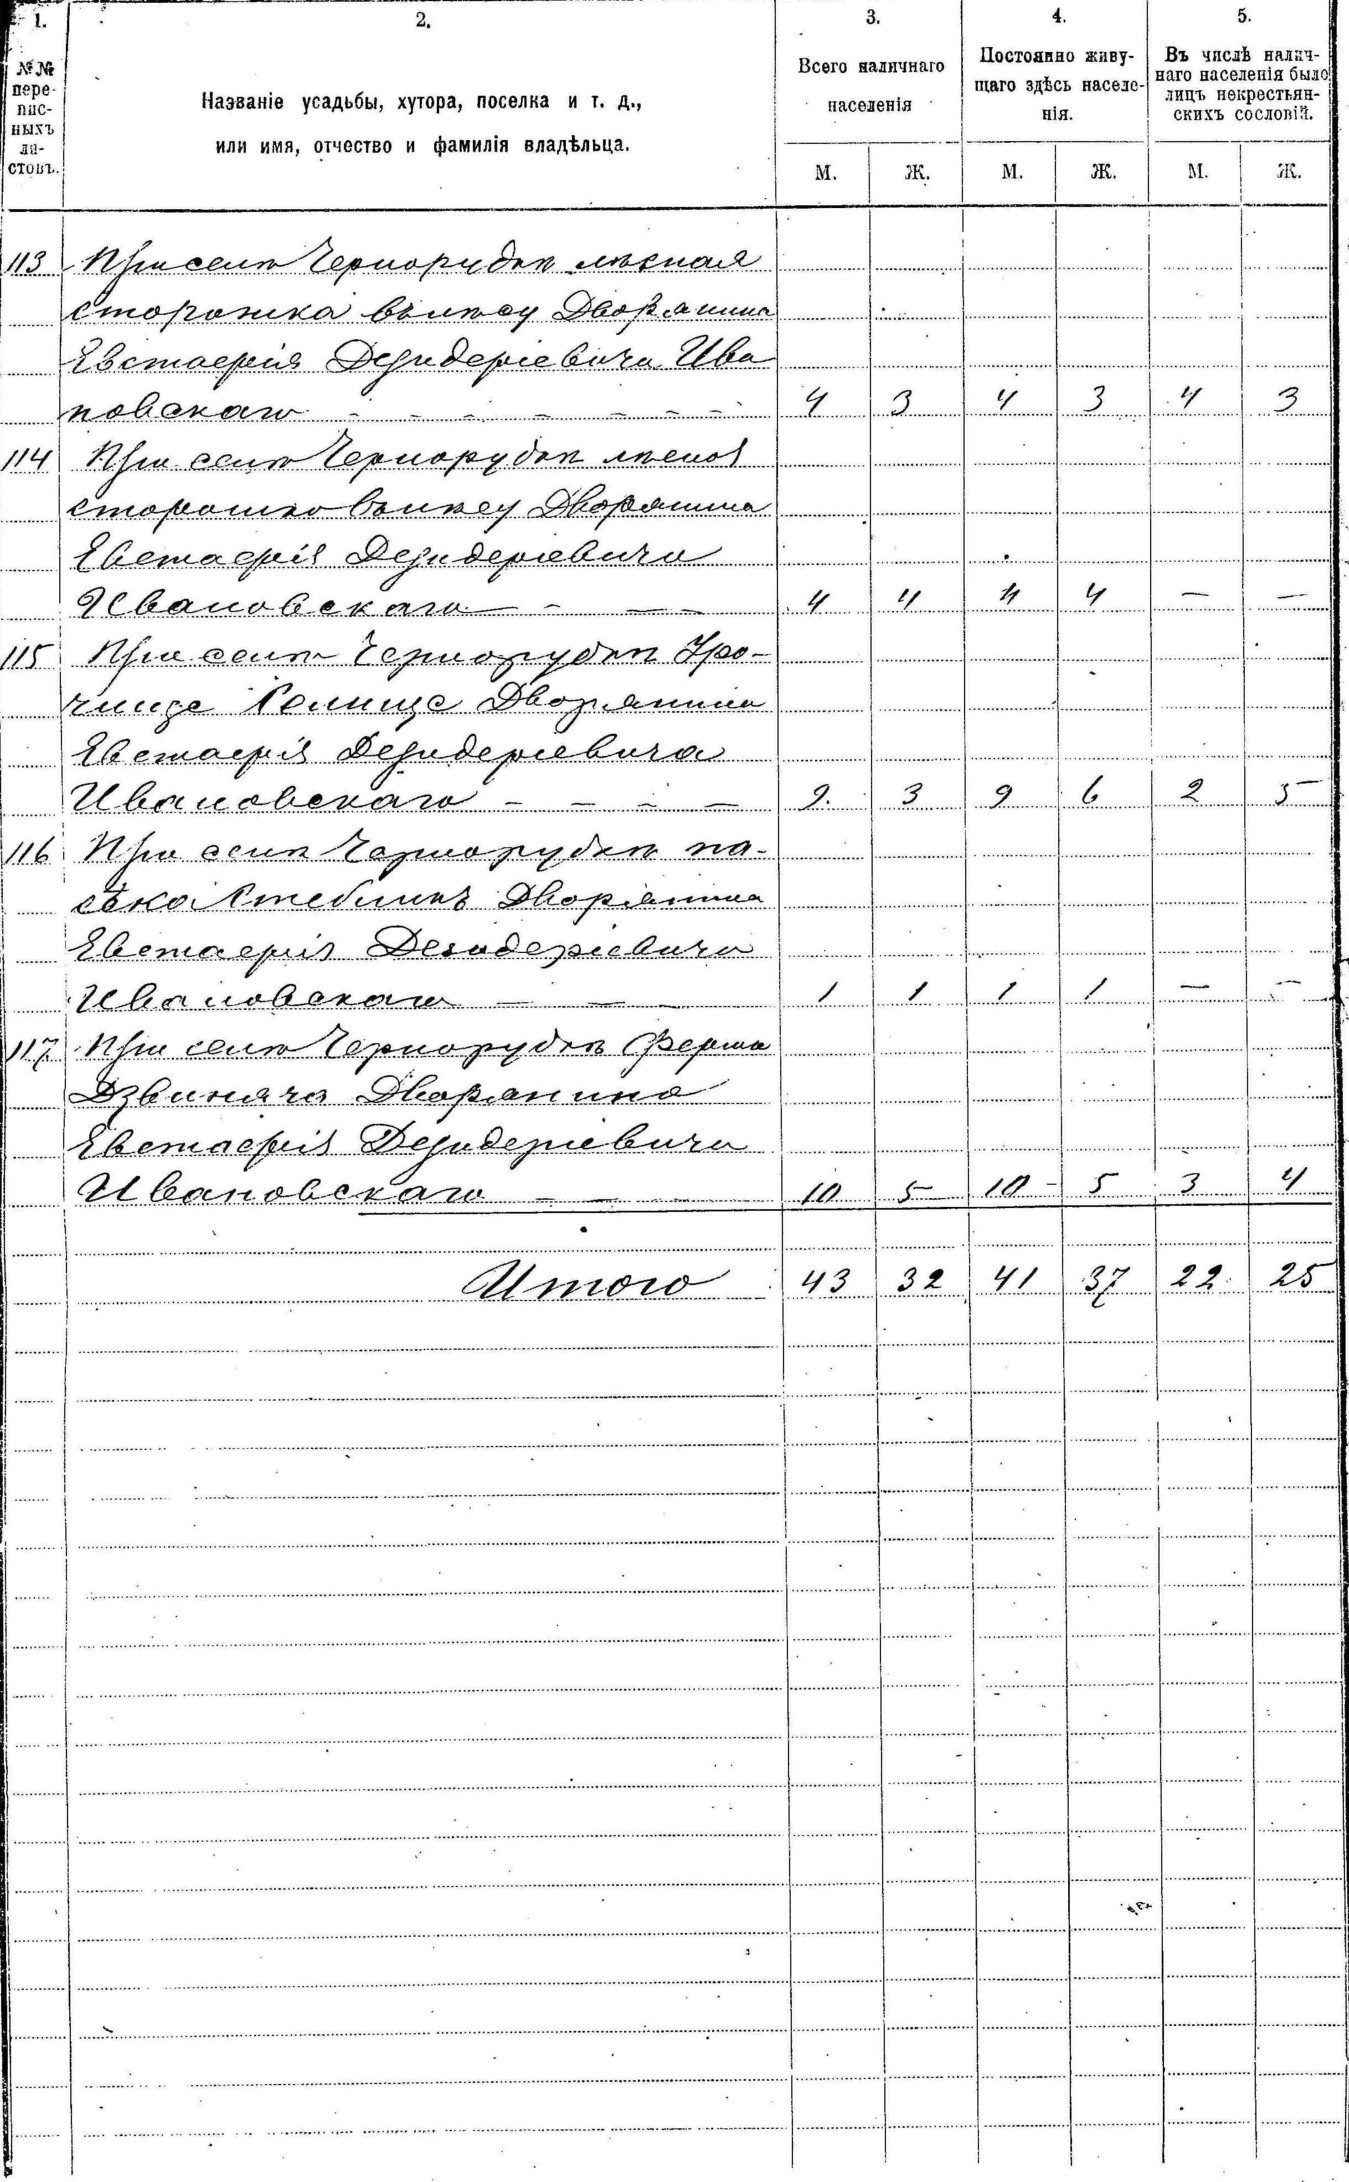 1. 2. 3. 4. 5.
№№ пере-
пис-
ныхъ
ли-
стовъ.
Названіе усадьбы, хутора, поселка и т. д.,
или имя, отчество и фамилія владѣльца.
Всего наличнаго
населенія
Постоянно живу-
щаго здѣсь населе-
нія.
Въ числѣ налич-
наго населенія было
лицъ некрестьян-
скихъ сословій.
М. Ж. М. Ж. М. Ж.
113 При селѣ Чернорудкѣ лѣсная
сторожка въ лѣсу Дворянина
Евстафія Дезидеріевича Ива
новскаго - - - - - - - 4 3 4 3 4 3
114 При селѣ Чернорудкѣ лѣсная
сторожка въ лѣсу Дворянина
Евстафія Дезидеріевича
Ивановскаго - — — 4 4 4 4 — —
115 При селѣ Чернорудкѣ Уро-
чище Селище Дворянина
Евстафія Дезидеріевича
Ивановскаго - - - — 9. 3 9 6 2 5
116 При селѣ Чернорудкѣ па-
сѣка Дворянина
Евстафія Дезидеріевича
Ивановскаго — — 1 1 1 1 — —
117 При селѣ Чернорудкѣ Ферма
Дзвиняча Дворянина
Евстафія Дезидеріевича
Ивановскаго - - — 10 5 10 5 3 4
Итого 43 32 41 37 22 25